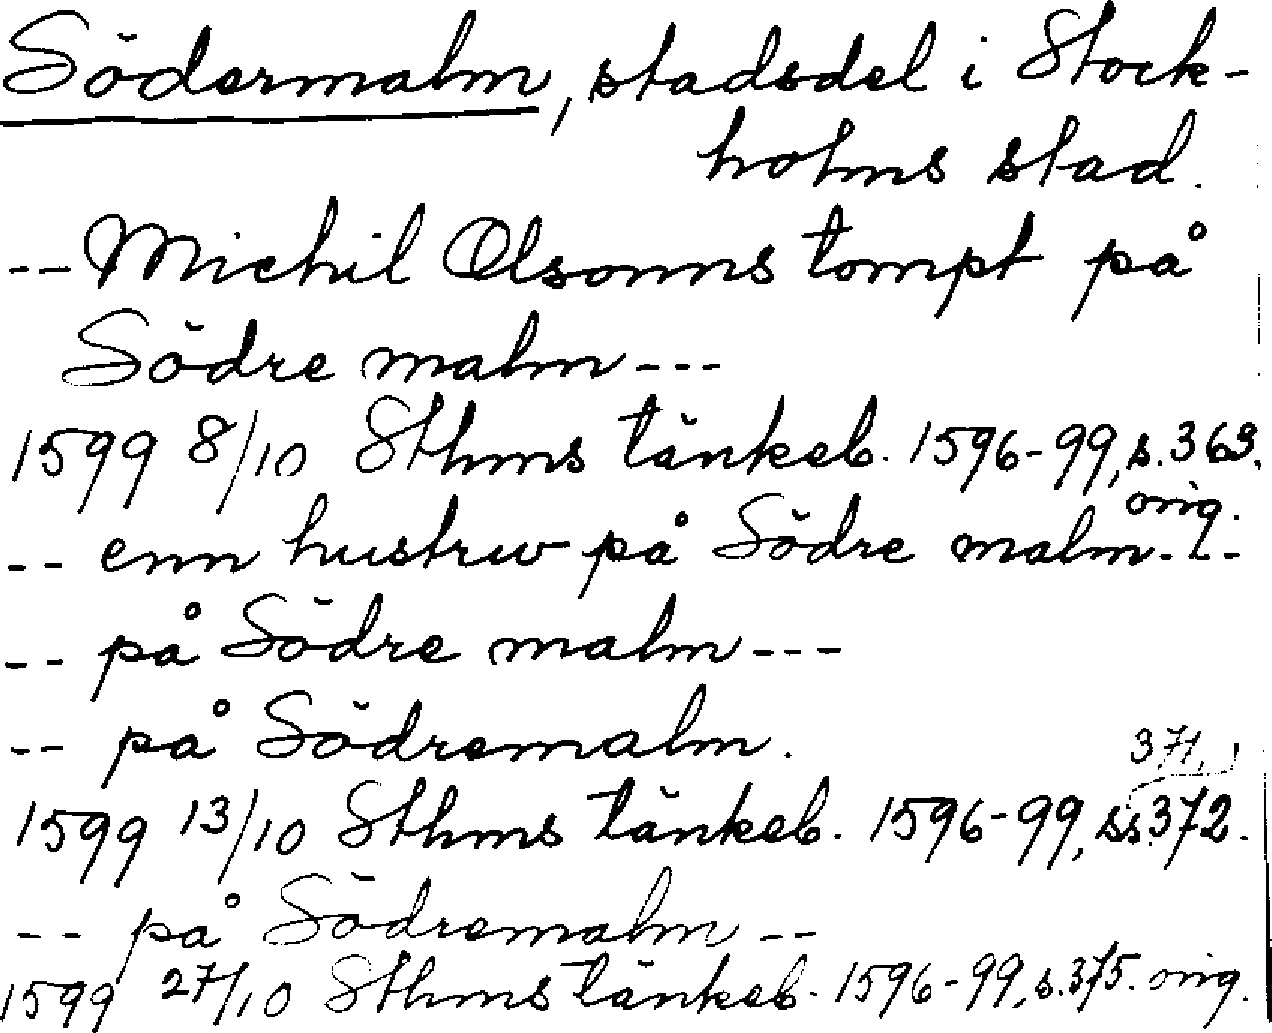 Södermalm, stadsdel i Stock-
holms stad.
-- Michil Olsonns tompt på
Södre malm ---
1599 8/10 Sthms tänkeb. 1596-99, s. 369.
orig.
-- enn hustrw på Södre malm ---
-- på Södre malm ---
-- på Södremalm.
371,
1599 13/10 Sthms tänkeb. 1596-99, ss. 372.
-- på Södremalm --
1599 27/10 Sthms tänkeb. 1596-99, s. 375. orig.